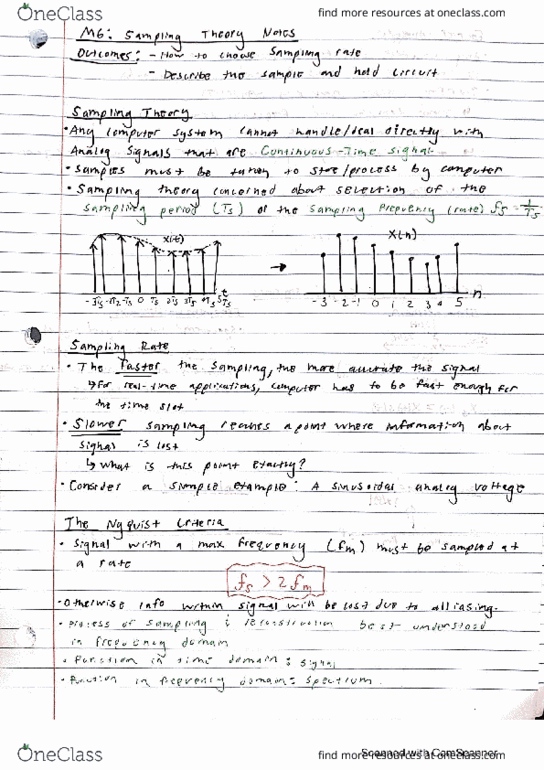 OneClass
find more resources at oneclass.com
M6: Sampling Theory Notes
Outcomes: - How to choose Sampling rate
- Describe the sample and hold circuit
Sampling Theory
• Any computer system cannot handle/deal directly with
Analog Signals that are Continuous-Time signal.
• Samples must be taken to store/process by computer
• Sampling theory concerned about selection of the
sampling period (Ts) or the sampling frequency (rate) fs = 1/Ts
x(t)
X(n)
t
-3Ts -2Ts -Ts 0 Ts 2Ts 3Ts 4Ts 5Ts
-3 -2 -1 0 1 2 3 4 5 n
Sampling Rate
• The Faster the sampling, the more accurate the signal
↳ For real-time applications, computer has to be fast enough for
the time slot
• Slower sampling reaches a point where information about
signal is lost
↳ what is this point exactly?
• Consider a simple example: A sinusoidal analog voltage
The Nyquist Criteria
• Signal with a max frequency (fm) must be sampled at
a rate
fs > 2fm
• Otherwise info within signal will be lost due to alliasing.
• process of sampling & reconstruction best understood
in frequency domain
• Function in time domain: signal
• Function in frequency domain: spectrum.
OneClass
Scanned with CamScanner
find more resources at oneclass.com